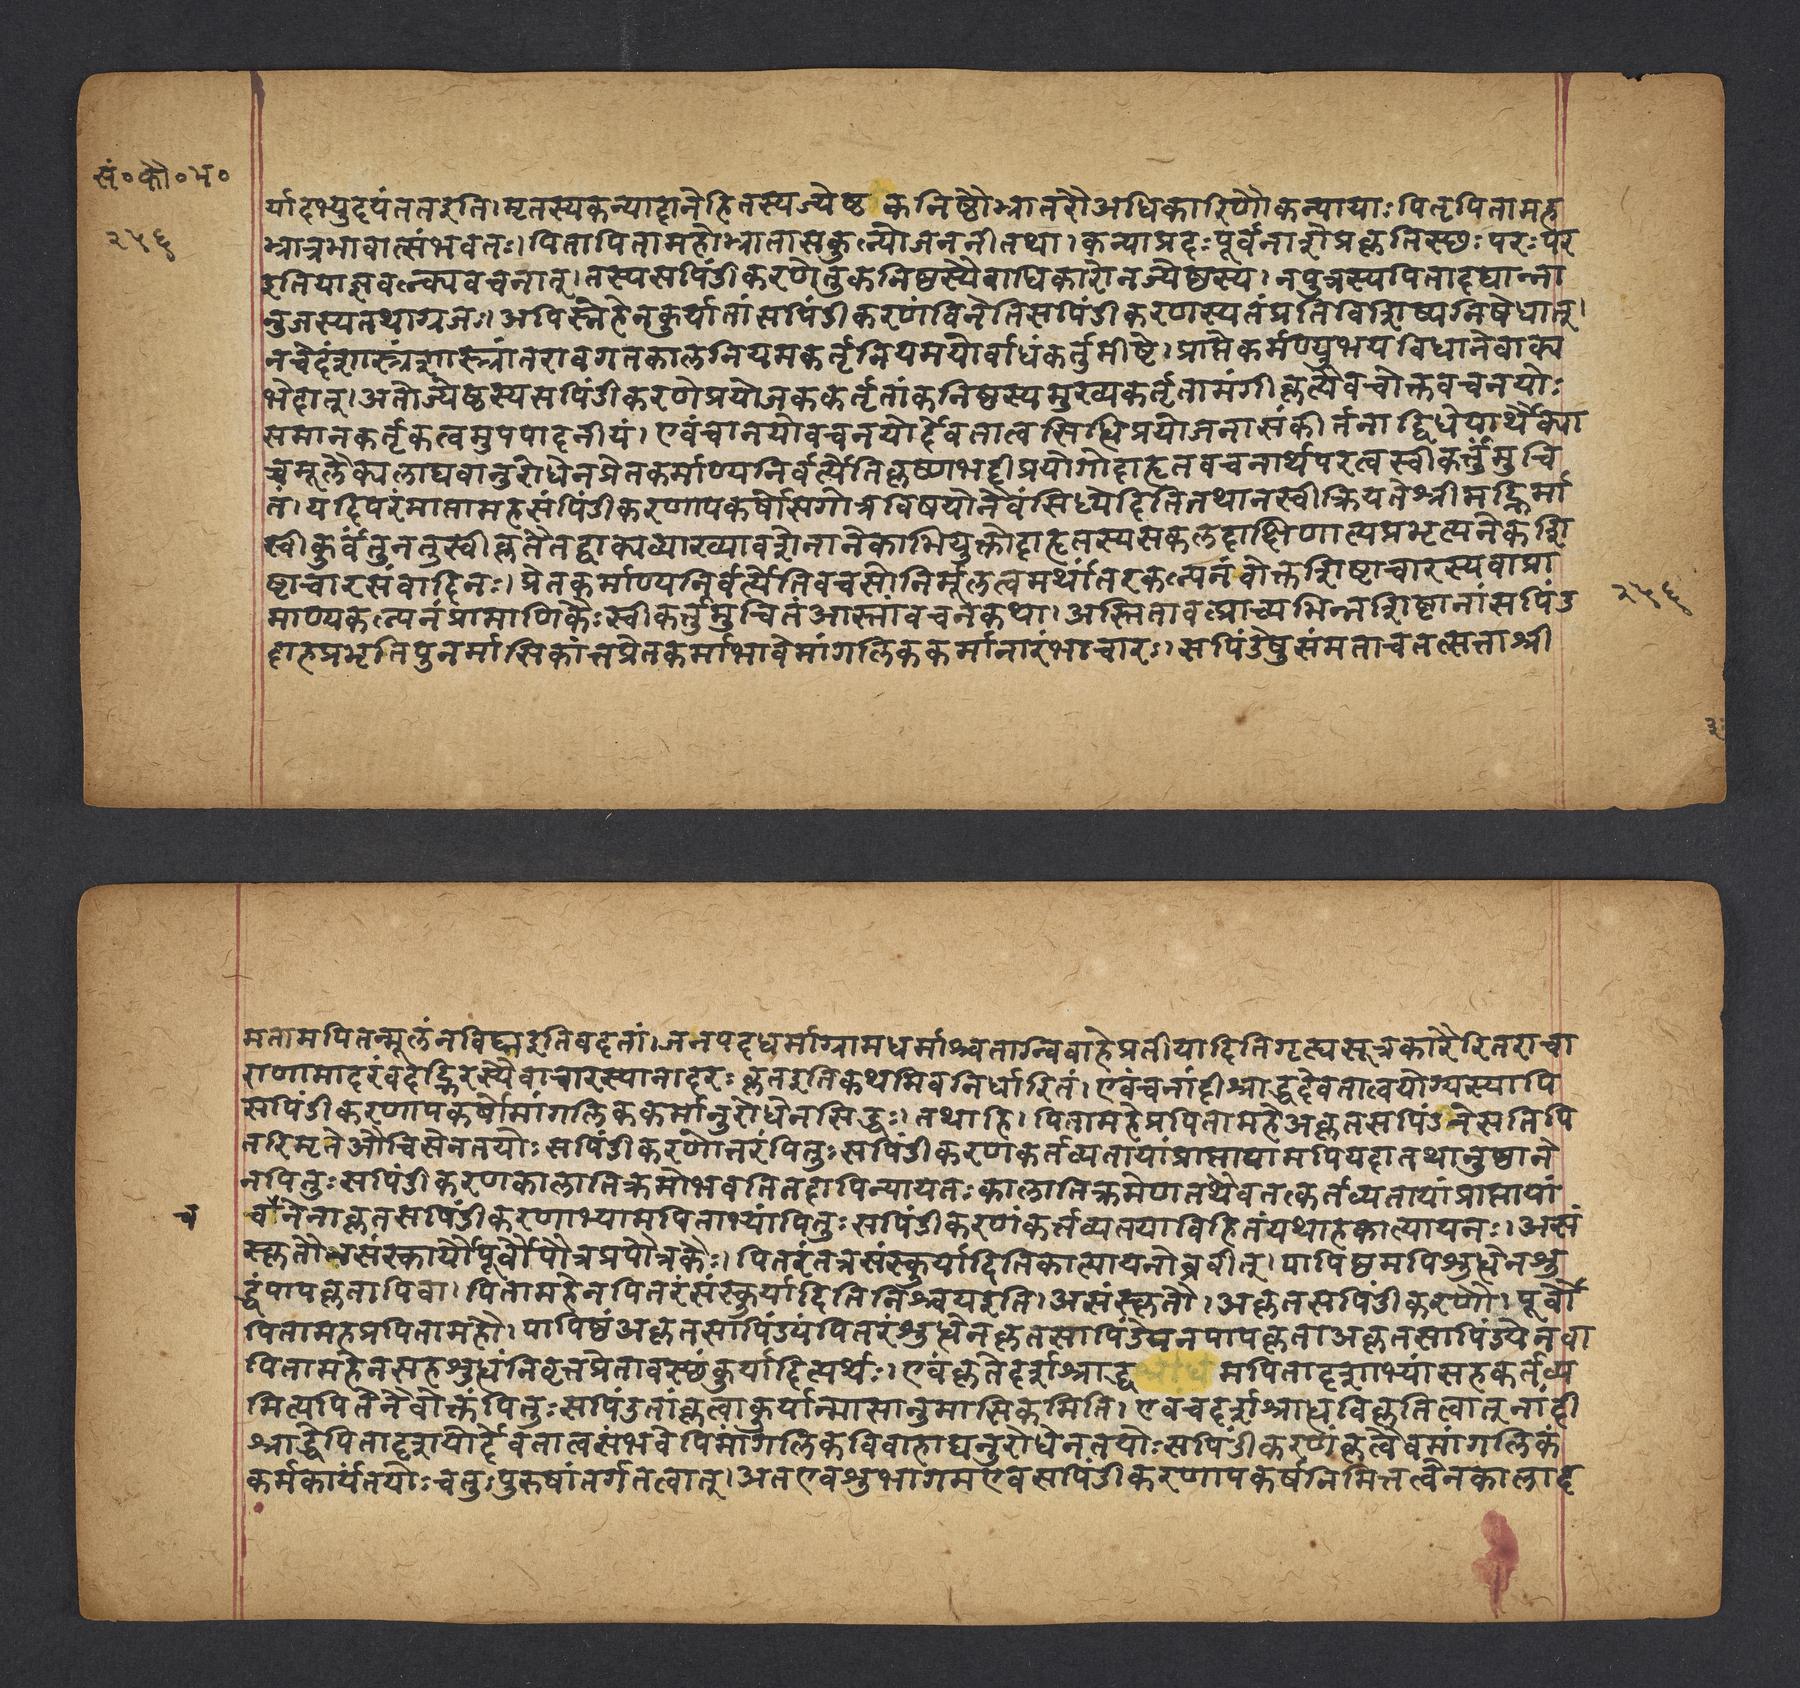 सं०कौ०भ०
२५६
र्यादभ्युदयंततइति।मृतस्यकन्यादानेहितस्यज्येष्ठकनिष्ठौभ्रातरौअधिकारिणौ।कन्यायाःपितृपितामह
भ्रात्रभावात्संभवतः।पितापितामहोभ्रातासकुल्योजननीतथा।कन्याप्रदःपूर्वनाशेप्रकृतिस्छःपरःपर
इतियाज्ञवल्क्यवचनात्।तस्यसपिंडीकरणेतुकनिष्ठस्यैवाधिकारोनज्येष्ठस्य।नपुत्रस्यपितादद्यान्ना
नुजस्यतथाग्रजः।अपिस्नेहेनकुर्यातांसपिंडीकरणंविनेतिसपिंडीकरणस्यतंप्रतिविशिष्यनिषेधात्।
नचेदंशास्त्रंशास्त्रांतरावगतकालनियमकर्तृनियमयोर्बाधंकर्तुमीष्टे।प्राप्तेकर्मण्युभयविधानेवाक्य
भेदात्।अतोज्येष्ठस्यसपिंडीकरणेप्रयोजककर्तृतांकनिष्ठस्यमुख्यकर्तृतामंगीकृत्यैवचोक्तवचनयोः
समानकर्तृकत्वमुपपादनीयं।एवंचानयोवचनयोर्देवतात्वसिद्धिप्रयोजनासंकीर्तनाद्विधेयार्थैक्या
च्चमूलैक्यलाघवानुरोधेनप्रेतकर्माण्यनिर्वर्त्येतिकृष्णभट्टीप्रयोगोदाहृतवचनार्थपरत्वस्वीकर्त्तुंमुचि
तं।यदिपरंमातामहसंपिंडीकरणापकर्षोसगोत्रविषयोनैवंसिध्येदितितथानस्वीक्रियतेश्रीमद्भिर्मा
स्वीकुर्वंतुननुस्वीकृतैतद्वाक्यव्याख्यावशेनानेकाभियुक्तोदाहृतस्यसकलदाक्षिणात्यप्रभृत्यनेकशि
ष्टाचारसंवादिनः।प्रेतकर्माण्यनिर्वर्त्येतिवचसोनिर्मूलत्वमर्थांतरकल्पनंवोक्तशिष्टाचारस्यवाप्रा
माण्यकल्पनंप्रामाणिकैःस्वीकर्त्तुमुचितंआस्तांवचनकथा।अस्तितावत्प्राच्यभिन्नशिष्टानांसपिंड
दाहप्रभृतिपुनर्मासिकांतप्रेतकर्माभावेमांगलिककर्मानारंभाचारः।सपिंडेषुसंमताचतत्सत्ताश्री
२५६
मतामपितन्मूलंनविद्मइतिवदतां।जनपदधर्माग्रामधर्माश्चतान्विवाहेप्रतीयादितिगृह्यसूत्रकारैरितराचा
राणामादरंवदद्भिरस्यैवाचारस्यानादरःकृतइतिकथमिवनिर्धारितं।एवंचनांदीश्राद्धदेवतात्वयोग्यस्यापि
सपिंडीकरणापकर्षोमांगलिककर्मानुरोधेनसिद्धः।तथाहि।पितामहेप्रपितामहेअकृतसपिंडनेसतिपि
तरिमृतेऔचित्येनतयोःसपिंडीकरणोत्तरंपितुःसपिंडीकरणकर्तव्यतायांप्राप्तायामपियदातथानुष्ठाने
नपितुःसपिंडीकरणकालातिक्रमोभवतितदापिन्यायतःकालातिक्रमेणतथैवतत्कर्तव्यतायांप्राप्तायां
च
वचनेनाकृतसपिंडीकरणाभ्यामपिताभ्यांपितुःसपिंडीकरणंकर्त्तव्यतयाविहितंयथाहकात्यायनः।असं
स्कृतौनसंस्कार्यौपूर्वौपौत्रप्रपौत्रकैः।पितरंतत्रसंस्कुर्यादितिकात्यायनोब्रवीत्।पापिष्ठमपिशुद्धेनशु
द्धंपापकृतापिवा।पितामहेनपितरंसंस्कुर्यादितिनिश्चयइति।असंस्कृतौ।अकृतसपिंडीकरणौ।पूर्वौ
पितामहप्रपितामहौ।पापिष्ठंअकृतसापिंड्यंपितरंशुद्धेनकृतसापिंड्येनपापकृताअकृतसापिंड्येनवा
पितामहेनसहशुद्धंनिवृत्तप्रेतावस्छंकुर्यादित्यर्थः।एवंकृतेदर्शश्राद्धमपितादृशाभ्यांसहकर्तव्य
मित्यपितेनैवोक्तंपितुःसपिंडतांकृत्वाकुर्यान्मासानुमासिकमिति।एवंचदर्शश्राद्धविकृतित्वात्नांदी
श्राद्धेपितादृशयोर्देवतात्वसंभवेपिमांगलिकविवाहाद्यनुरोधेनतयोःसपिंडीकरणंकृत्वैवमांगलिकं
कर्मकार्यंतयोःचतुःपुरुषांतर्गतत्वात्।अतएवशुभागमएवसपिंडीकरणापकर्षनिमित्तत्वेनकालाद